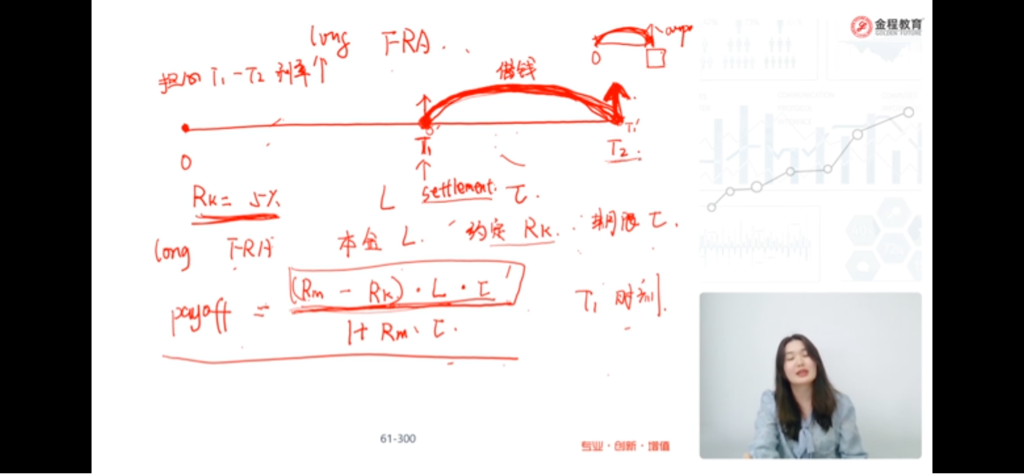 long FRA . .
担心 T₁ - T₂ 利率↑
借钱
0
0
T₁
0'
T₁'
T₂
Rk = 5%
L settlement. τ.
long FRA 本金 L. 约定 Rk. 期限 τ.
payoff = (Rm - Rk) · L · τ / 1 + Rm · τ. T₁ 时刻.
金程教育
GOLDEN FUTURE
61-300
专业·创新·增值